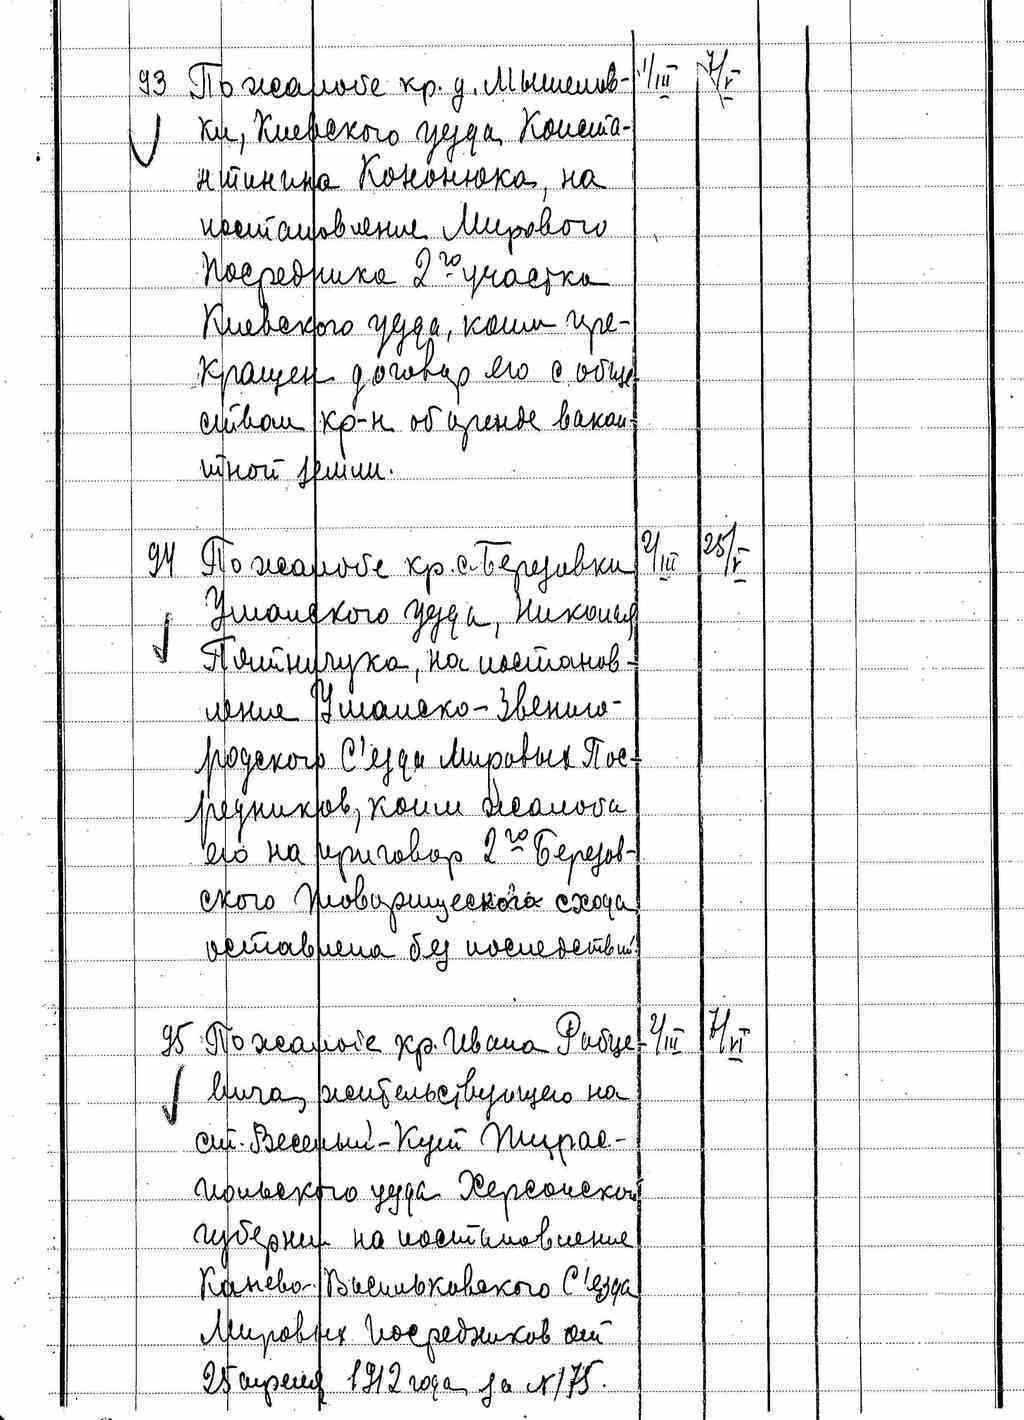 93 По жалобе кр. д. Мышелов- 1/III 7/V
ки, Киевского уезда Конста-
нтинина Кононюка, на
постановление Мирового
Посредника 2го участка
Киевского уезда, коим пре-
кращен договор его с обще
ством кр-н об аренде вакан-
тной земли.
94 По жалобе кр. с. Березовки 2/III 25/V
Уманского уезда, Николая
Пятничука, на постанов-
ление Уманско-Звениго-
родского С'езда Мировых Пос-
редников, коим жалоба
его на приговор 2го Березов-
ского товарищеского схода
оставлена без последствий.
95 По жалобе кр. Ивана Рабце- 2/III 7/VI
вича, жительствующего на
ст. Веселый-Кут Тирас-
польского уезда Херсонской
губернии на постановление
Канево-Васильковского С'езда
Мировых Посредников от
25 апреля 1912 года за N 175.